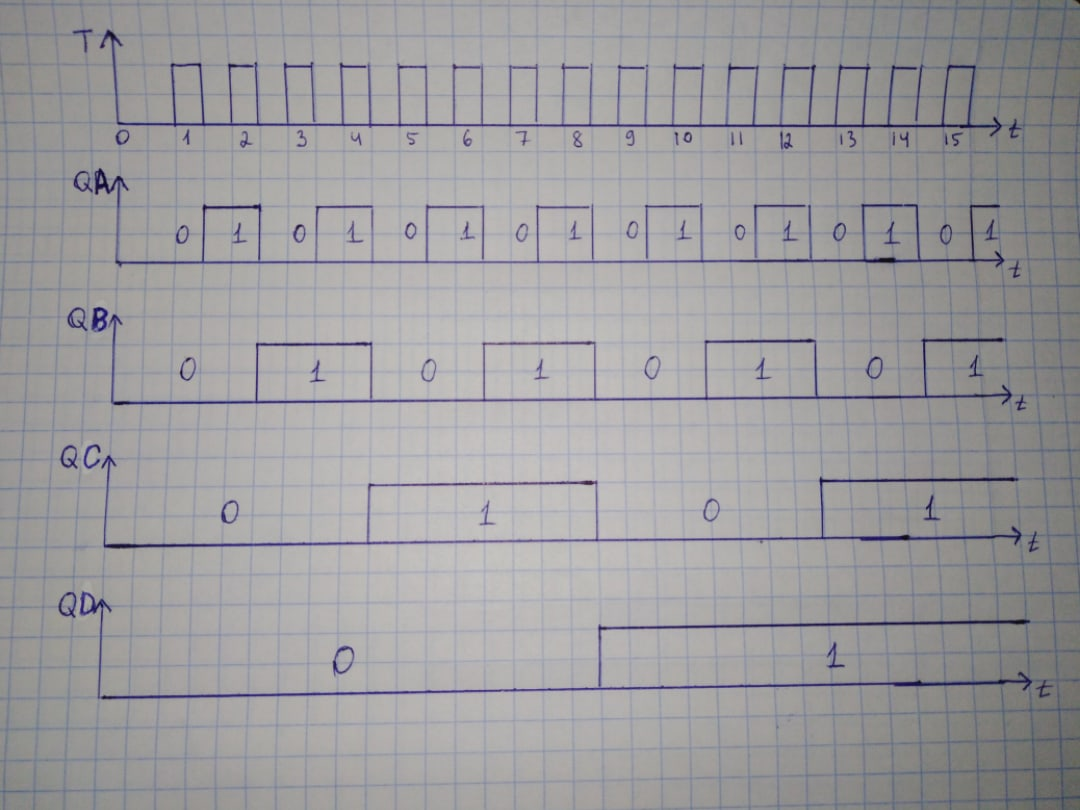 T
0 1 2 3 4 5 6 7 8 9 10 11 12 13 14 15 t
QA
0 1 0 1 0 1 0 1 0 1 0 1 0 1 0 1
t
QB
0 1 0 1 0 1 0 1
t
QC
0 1 0 1
t
QD
0 1
t